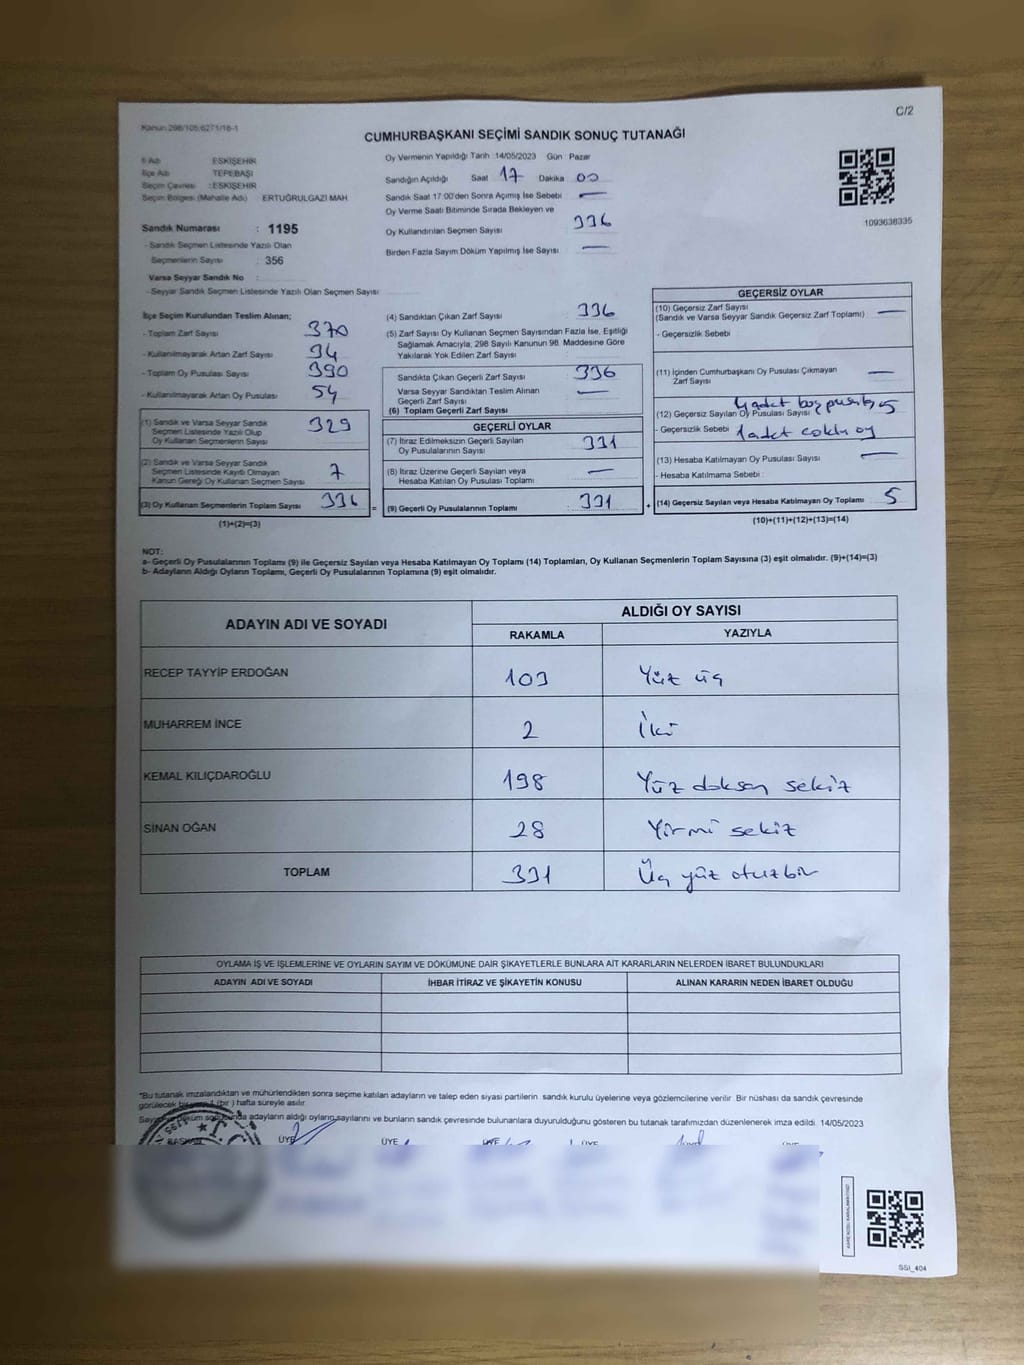 Kanun:298/105,6271/18-1
C/2
CUMHURBAŞKANI SEÇİMİ SANDIK SONUÇ TUTANAĞI
İl Adı : ESKİŞEHİR
İlçe Adı : TEPEBAŞI
Seçim Çevresi : ESKİŞEHİR
Seçim Bölgesi (Mahalle Adı) ERTUĞRULGAZİ MAH
Sandık Numarası : 1195
- Sandık Seçmen Listesinde Yazılı Olan
Seçmenlerin Sayısı : 356
Varsa Seyyar Sandık No :
- Seyyar Sandık Seçmen Listesinde Yazılı Olan Seçmen Sayısı
Oy Vermenin Yapıldığı Tarih :14/05/2023 Gün Pazar
Sandığın Açıldığı Saat 17 Dakika 00
Sandık Saat 17:00'den Sonra Açımış İse Sebebi —
Oy Verme Saati Bitiminde Sırada Bekleyen ve
Oy Kullandırılan Seçmen Sayısı 336
Birden Fazla Sayım Döküm Yapılmış İse Sayısı —
1093636335
İlçe Seçim Kurulundan Teslim Alınan;
- Toplam Zarf Sayısı : 370
- Kullanılmayarak Artan Zarf Sayısı : 34
- Toplam Oy Pusulası Sayısı : 390
- Kullanılmayarak Artan Oy Pusulası : 54
(1) Sandık ve Varsa Seyyar Sandık
Seçmen Listesinde Yazılı Olup
Oy Kullanan Seçmenlerin Sayısı : 329
(2) Sandık ve Varsa Seyyar Sandık
Seçmen Listesinde Kayıtlı Olmayan
Kanun Gereği Oy Kullanan Seçmen Sayısı : 7
(3) Oy Kullanan Seçmenlerin Toplam Sayısı : 336 =
(1)+(2)=(3)
(4) Sandıktan Çıkan Zarf Sayısı : 336
(5) Zarf Sayısı Oy Kullanan Seçmen Sayısından Fazla İse, Eşitliği
Sağlamak Amacıyla, 298 Sayılı Kanunun 98. Maddesine Göre
Yakılarak Yok Edilen Zarf Sayısı :
Sandıkta Çıkan Geçerli Zarf Sayısı : 336
Varsa Seyyar Sandıktan Teslim Alınan
Geçerli Zarf Sayısı : —
(6) Toplam Geçerli Zarf Sayısı
GEÇERLİ OYLAR
(7) İtiraz Edilmeksizin Geçerli Sayılan
Oy Pusulalarının Sayısı : 331
(8) İtiraz Üzerine Geçerli Sayılan veya
Hesaba Katılan Oy Pusulası Toplamı : —
(9) Geçerli Oy Pusulalarının Toplamı : 331 +
GEÇERSİZ OYLAR
(10) Geçersiz Zarf Sayısı
(Sandık ve Varsa Seyyar Sandık Geçersiz Zarf Toplamı) : —
- Geçersizlik Sebebi :
(11) İçinden Cumhurbaşkanı Oy Pusulası Çıkmayan
Zarf Sayısı : —
4 adet boş pusula
(12) Geçersiz Sayılan Oy Pusulası Sayısı 5
- Geçersizlik Sebebi : 1 adet çoklu oy
(13) Hesaba Katılmayan Oy Pusulası Sayısı : —
- Hesaba Katılmama Sebebi :
(14) Geçersiz Sayılan veya Hesaba Katılmayan Oy Toplamı : 5
(10)+(11)+(12)+(13)=(14)
NOT:
a- Geçerli Oy Pusulalarının Toplamı (9) ile Geçersiz Sayılan veya Hesaba Katılmayan Oy Toplamı (14) Toplamları, Oy Kullanan Seçmenlerin Toplam Sayısına (3) eşit olmalıdır. (9)+(14)=(3)
b- Adayların Aldığı Oyların Toplamı, Geçerli Oy Pusulalarının Toplamına (9) eşit olmalıdır.
ADAYIN ADI VE SOYADI
ALDIĞI OY SAYISI
RAKAMLA YAZIYLA
RECEP TAYYİP ERDOĞAN 103 Yüz üç
MUHARREM İNCE 2 İki
KEMAL KILIÇDAROĞLU 198 Yüz doksan sekiz
SİNAN OĞAN 28 Yirmi sekiz
TOPLAM 331 Üç yüz otuzbir
OYLAMA İŞ VE İŞLEMLERİNE VE OYLARIN SAYIM VE DÖKÜMÜNE DAİR ŞİKAYETLERLE BUNLARA AİT KARARLARIN NELERDEN İBARET BULUNDUKLARI
ADAYIN ADI VE SOYADI İHBAR İTİRAZ VE ŞİKAYETİN KONUSU ALINAN KARARIN NEDEN İBARET OLDUĞU
*Bu tutanak imzalandıktan ve mühürlendikten sonra seçime katılan adayların ve talep eden siyasi partilerin sandık kurulu üyelerine veya gözlemcilerine verilir. Bir nüshası da sandık çevresinde
görülecek bir yere 1 (bir ) hafta süreyle asılır.
Sayım ve döküm sonucunda adayların aldığı oyların sayılarını ve bunların sandık çevresinde bulunanlara duyurulduğunu gösteren bu tutanak tarafımızdan düzenlenerek imza edildi. 14/05/2023
BAŞKAN ÜYE ÜYE ÜYE ÜYE
T.C.
1195
SSI_404